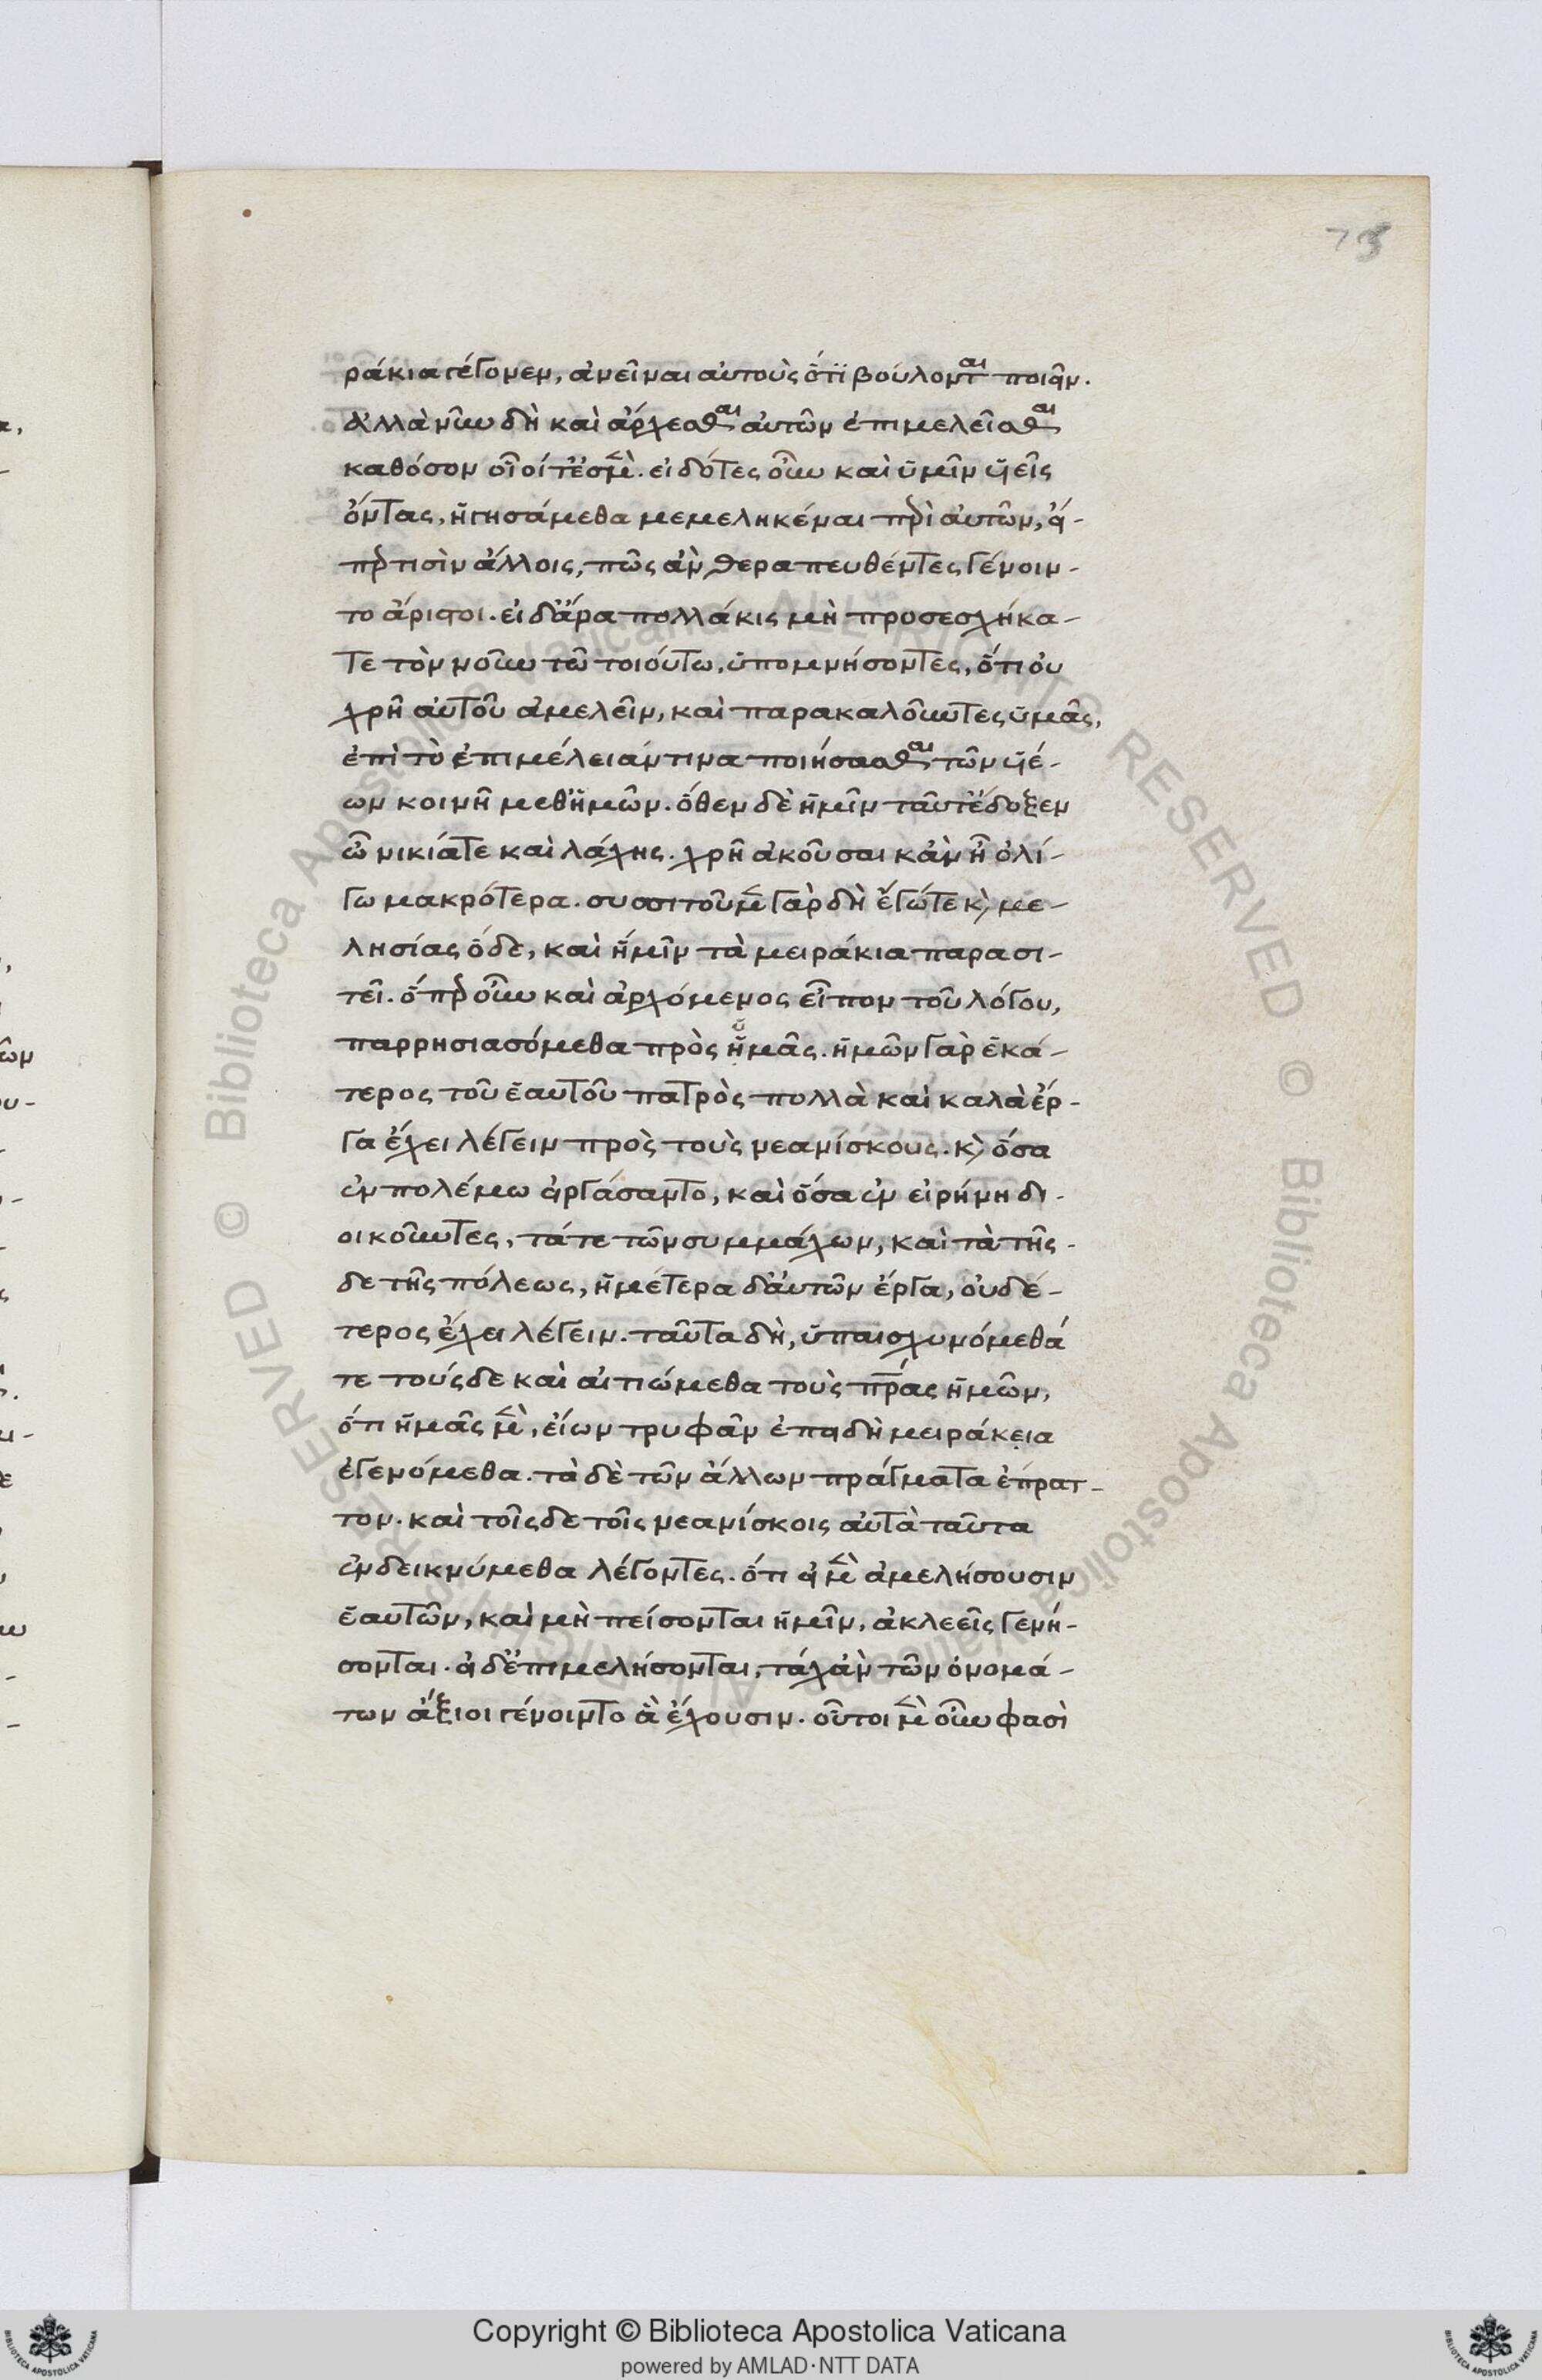 73
ράκια γέγονεν, ἀνεῖναι αὐτοὺς ὅτι βούλονται ποιεῖν.
ἀλλὰ νῦν δὴ καὶ ἄρχεσθαι αὐτῶν ἐπιμελεῖσθαι
καθόσον οἷοί τ' ἐσμὲν. εἰδότες οὖν καὶ ὑμῖν υἱεῖς
ὄντας, ἡγησάμεθα μεμεληκέναι περὶ αὐτῶν, εἴ-
περ τισὶν ἄλλοις, πῶς ἂν θεραπευθέντες γένοιν-
το ἄριστοι. εἰ δ' ἄρα πολλάκις μὴ προσεσχήκα-
τε τὸν νοῦν τῶ τοιούτω, ὑπομνήσοντες, ὅτι οὐ
χρὴ αὐτοῦ ἀμελεῖν, καὶ παρακαλοῦντες ὑμᾶς,
ἐπὶ τὸ ἐπιμέλειάν τινα ποιήσασθαι τῶν υἱέ-
ων κοινῆ μεθ' ἡμῶν. ὅθεν δὲ ἡμῖν ταῦτ' ἔδοξεν
ὦ νικία τε καὶ λάχης. χρὴ ἀκοῦσαι κἂν ἦ ὀλί-
γω μακρότερα. συσσιτοῦμεν γὰρ δὴ ἐγώ τε καὶ με-
λησίας ὅδε, καὶ ἡμῖν τὰ μειράκια παρασι-
τεῖ. ὅπερ οὖν καὶ ἀρχόμενος εἶπον τοῦ λόγου,
παρρησιασόμεθα πρὸς ἡμᾶς. ἡμῶν γὰρ ἑκά-
τερος τοῦ ἑαυτοῦ πατρὸς πολλὰ καὶ καλὰ ἔρ-
γα ἔχει λέγειν πρὸς τοὺς νεανίσκους. καὶ ὅσα
ἐν πολέμω εἰργάσαντο, καὶ ὅσα ἐν εἰρήνη δι-
οικοῦντες, τά τε τῶν συμμάχων, καὶ τὰ τῆς-
δε τῆς πόλεως, ἡμέτερα δ' αὐτῶν ἔργα, οὐδέ-
τερος ἔχει λέγειν. ταῦτα δὴ, ὑπαισχυνόμεθά
τε τούςδε καὶ αἰτιώμεθα τοὺς πρας ἡμῶν,
ὅτι ἡμᾶς μὲν, εἴων τρυφᾶν ἐπειδὴ μειράκεια
ἐγενόμεθα. τὰ δὲ τῶν ἄλλων πράγματα ἔπρατ-
τον. καὶ τοῖςδε τοῖς νεανίσκοις αὐτὰ ταῦτα
ἐνδεικνύμεθα λέγοντες. ὅτι εἰ μὲν ἀμελήσουσιν
ἑαυτῶν, καὶ μὴ πείσονται ἡμῖν, ἀκλεεῖς γενή-
σονται. εἰ δ' ἐπιμελήσονται, τάχ' ἂν τῶν ὀνομά-
των ἄξιοι γένοιντο ἃ ἔχουσιν. οὗτοι μὲν οὖν φασὶ
Copyright © Biblioteca Apostolica Vaticana
powered by AMLAD·NTT DATA